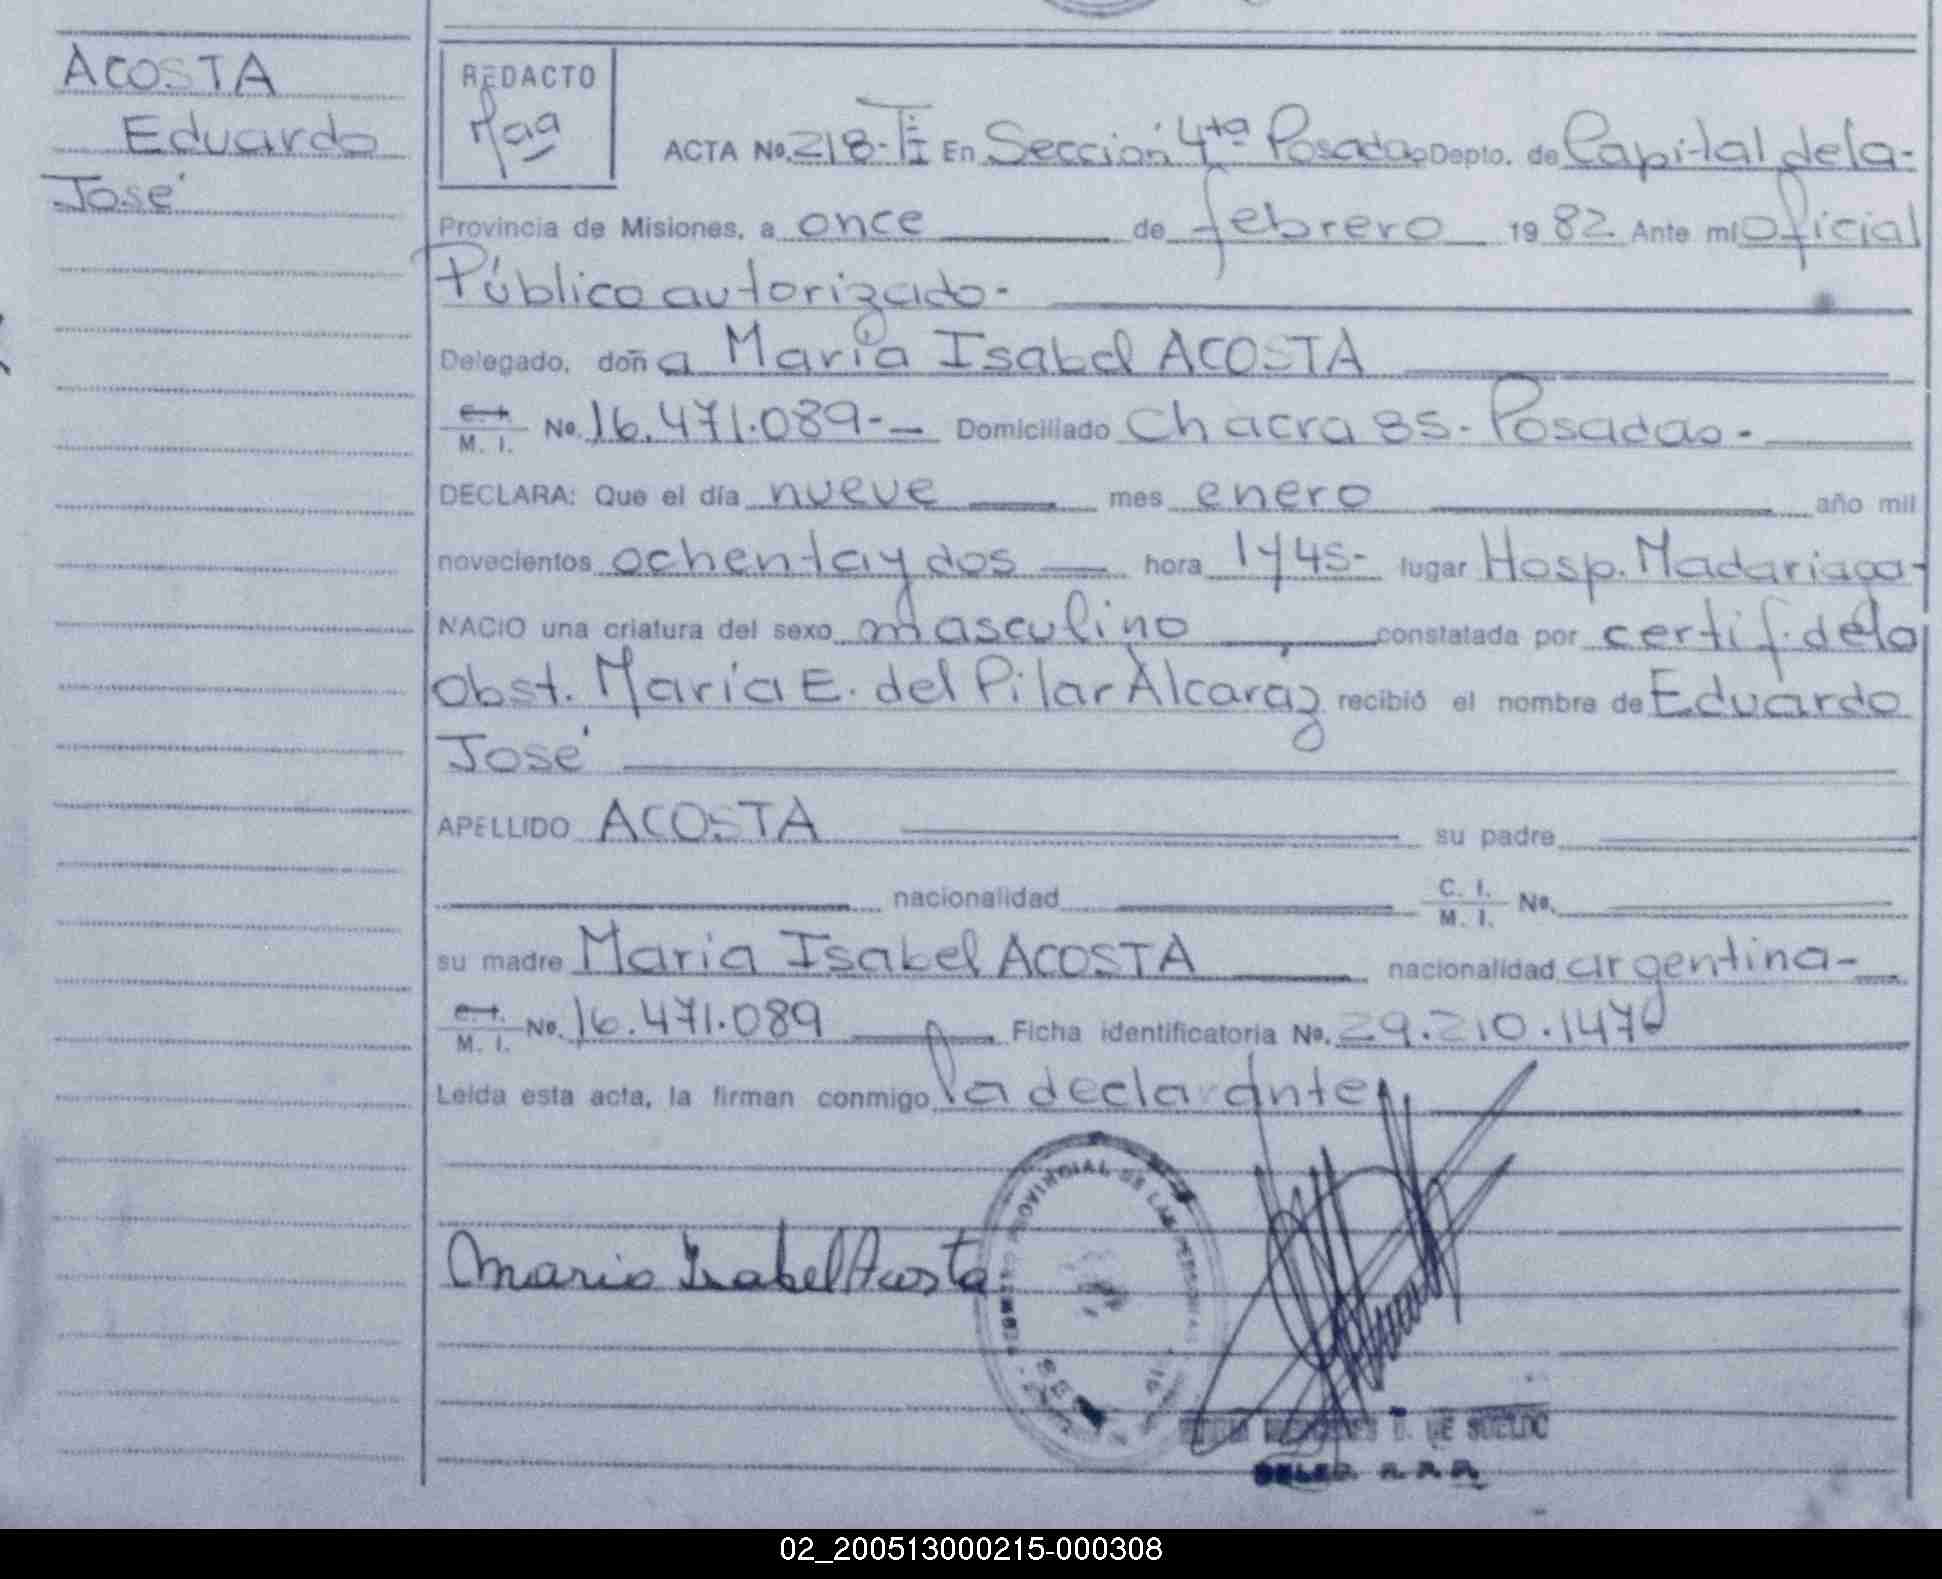 ACOSTA
Eduardo
José
REDACTO
ACTA No. 218-TI En Sección 4ta Posadas Depto. de Capital de la-
Provincia de Misiones, a once de febrero 1982 Ante mi oficial
Público autorizado-
Delegado, doña María Isabel ACOSTA
M. I. No. 16.471.089-- Domiciliado Chacra 85- Posadas-
DECLARA: Que el día nueve mes enero año mil
novecientos ochenta y dos hora 1745- lugar Hosp. Madariaga-
NACIO una criatura del sexo masculino constatada por certif. de la
obst. María E. del Pilar Alcaráz recibió el nombre de Eduardo
José
APELLIDO ACOSTA su padre
nacionalidad C. I. M. I. No.
su madre María Isabel ACOSTA nacionalidad argentina-
M. I. No. 16.471.089 Ficha identificatoria No. 29.210.147
Leída esta acta, la firman conmigo la declarante
Maria Isabel Acosta
PROVINCIAL DE LAS PERSONAS
DE SUELDO
DELEG. R.P.P.
02_200513000215-000308